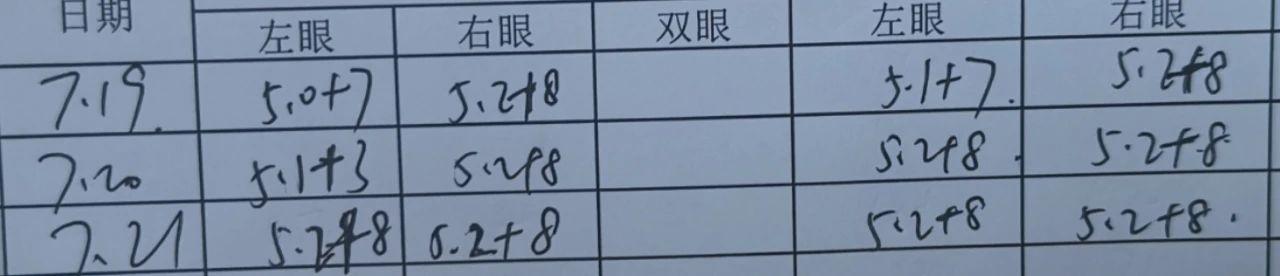 日期 左眼 右眼 双眼 左眼 右眼
7.19. 5.0+7 5.2+8 5.1+7. 5.2+8
7.20 5.1+3 5.2+8 5.2+8. 5.2+8
7.21 5.2+8 5.2+8 5.2+8 5.2+8.